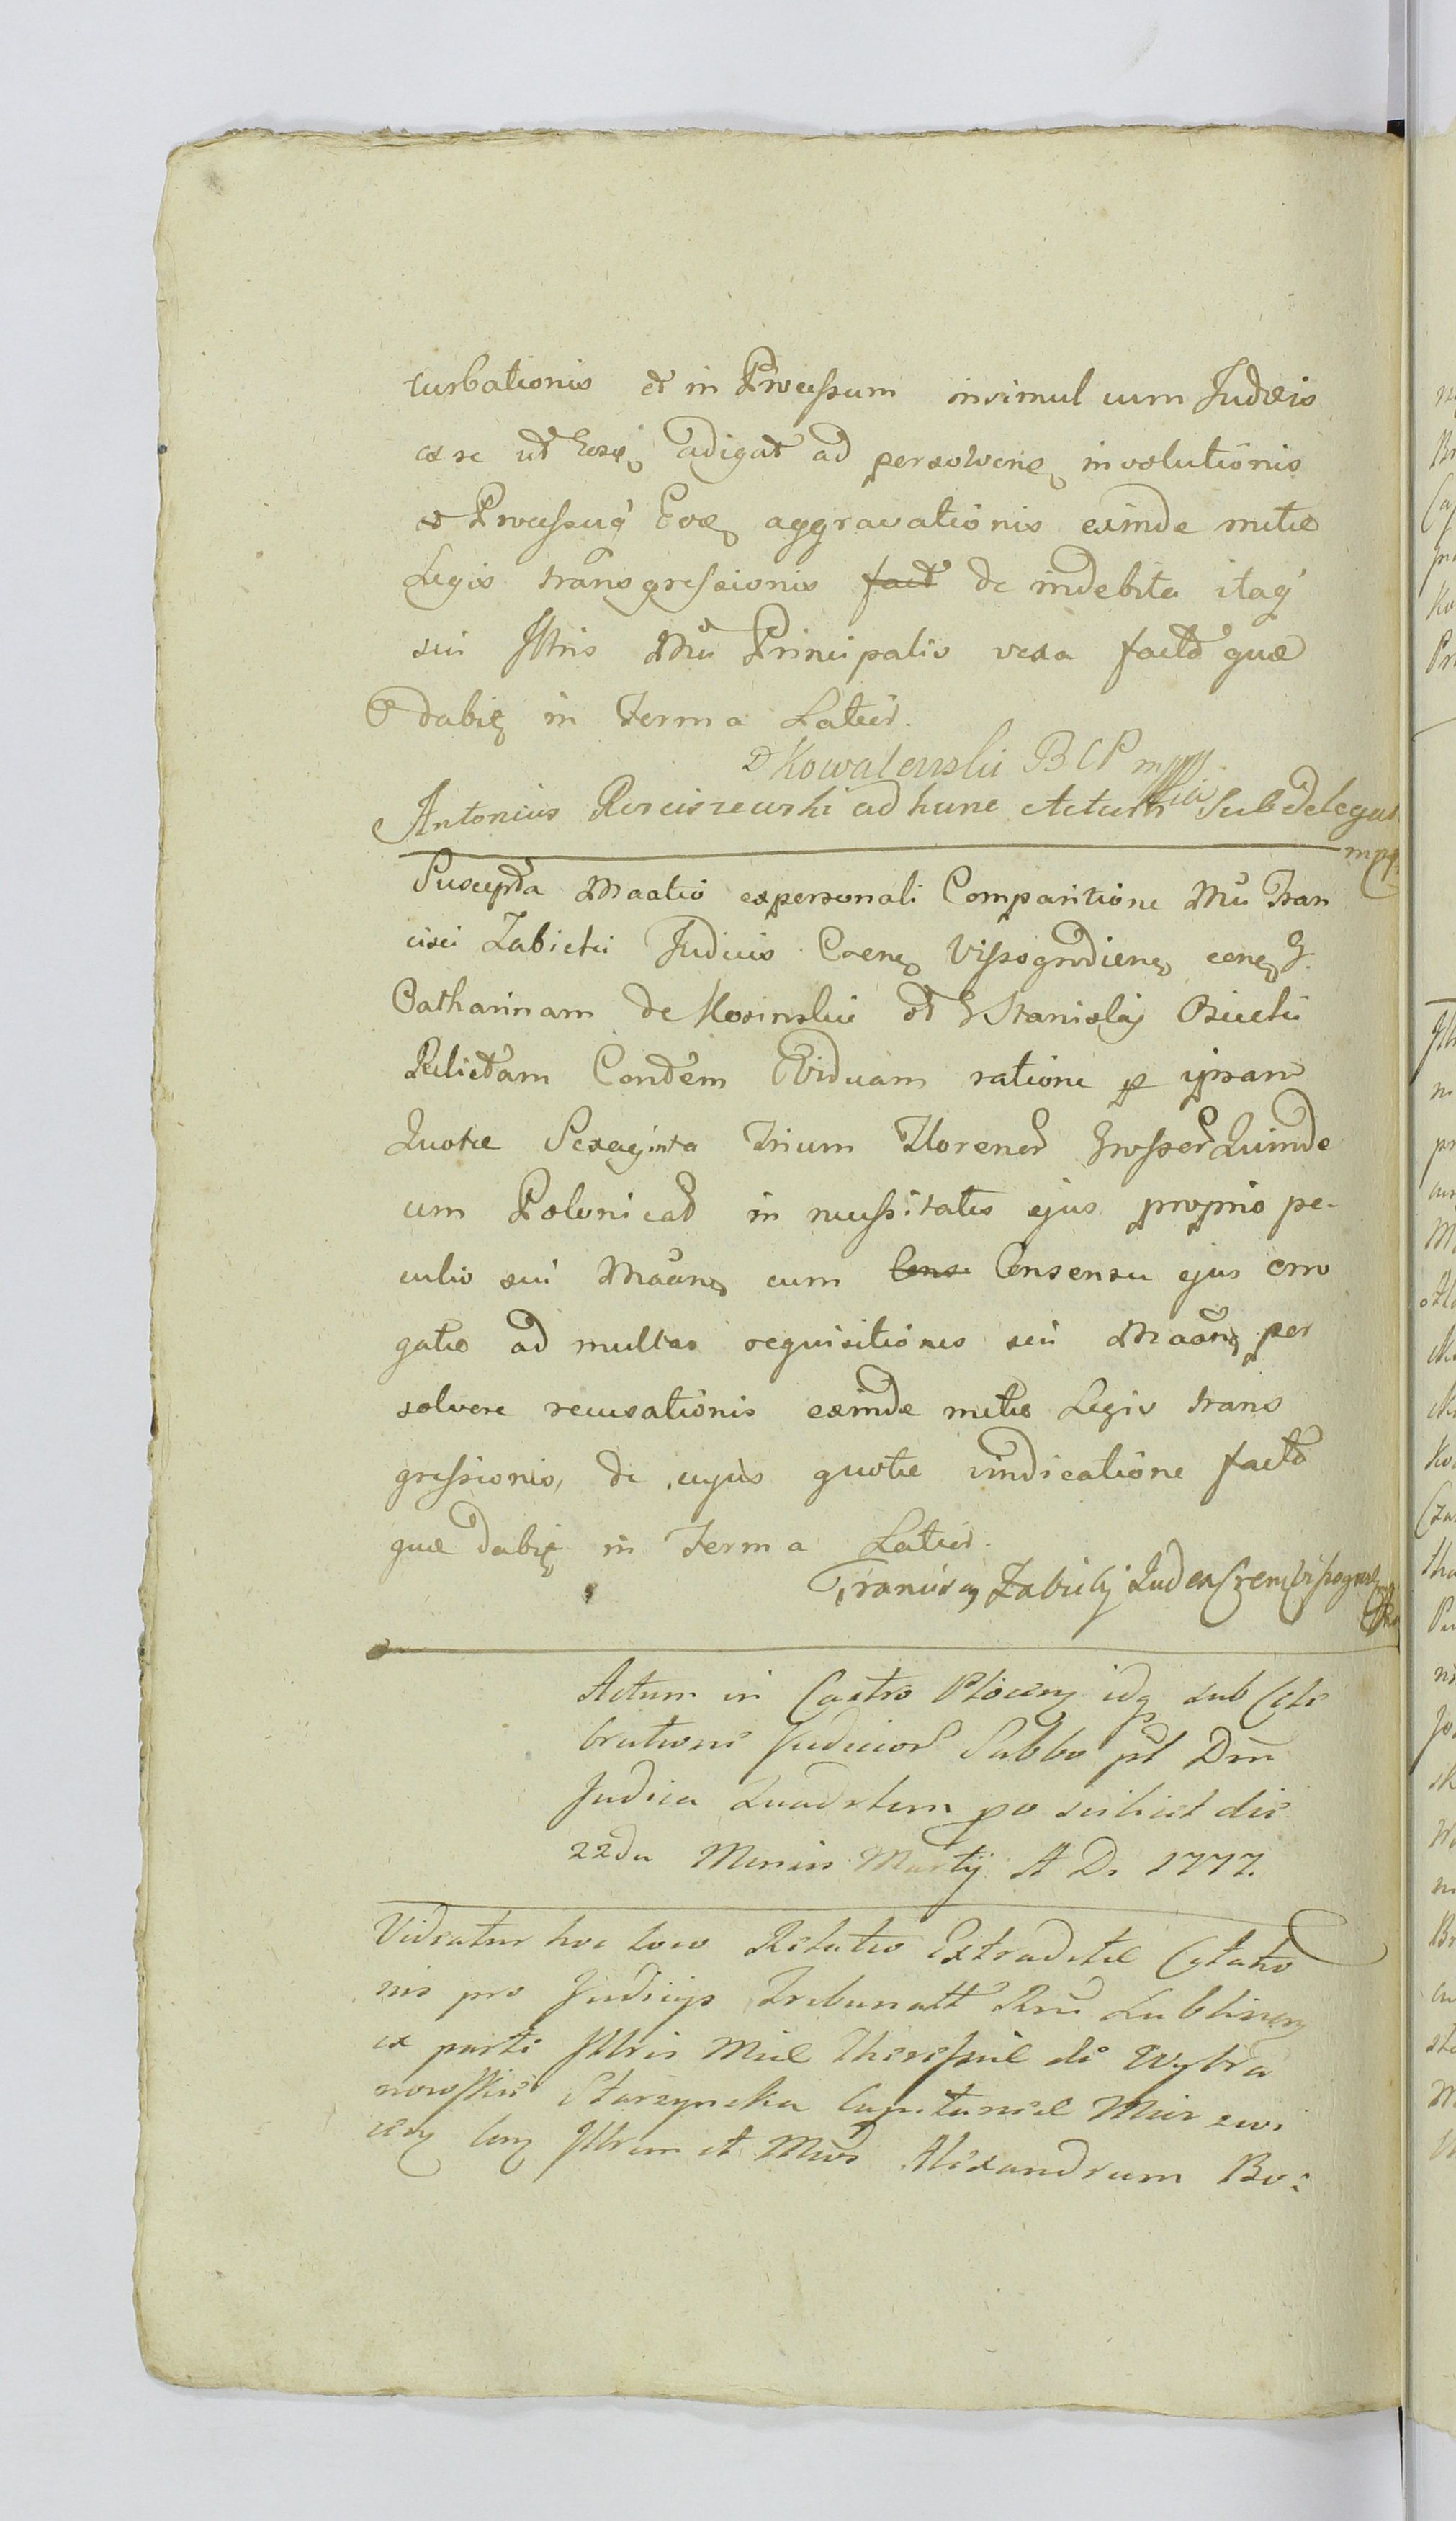 turbationis et in Processum insimul cum Judæis
ex se ut Eosq adigat ad persolvenq involutionis
et Processuq Eosq aggravationis exinde mette
Legis transgressionis fact de indebita itaq
sui Jllris Mci Principalis vexa factd quæ
dabiq in Term a Latius.
Kowalewski B C P mpp
Antonius Rosciszewski ad hunc Actum Subdelegat
mpp
Suscepta Maatio ex personali Comparitione Mci Fran
cisci Zabicki Judicis Vissogrodienq conq G.
Catharinam de Kosinskie ol G Stanislaj Osiecki
Relictam Condem Viduam ratione p ipsam
Quotæ Sexaginta Trium Florenor Grosser Quinde
cim Polonicad in necessitates ejus proprio pe-
culio sui Maanq cum Cons Consensu ejus erro
gatæ ad multas requisitiones sui Maanq per
solvere recusationis exinde mette Legis trans
gressionis, de cujus quotæ vindicatione factd
quæ dabiq in Term a Latius.
Franciscq Zabickj Judex
Actum in Castro Plocenq idq sub Cele
bratione Judicior Sabbo pt Dni
Judica Quadrlem po scilicet die
22da Mensis Martij A D. 1777.
Videatur hoc loco Relatio Extraditæ Cytatio
nis pro Judicijs Tribunall Rni Lublinenq
ex parte Jllris Mcæ Theressiæ de Wybra
nowskie Starzynska Capitaneæ
conq Jllrem et Mcos Alexandrum Bo: